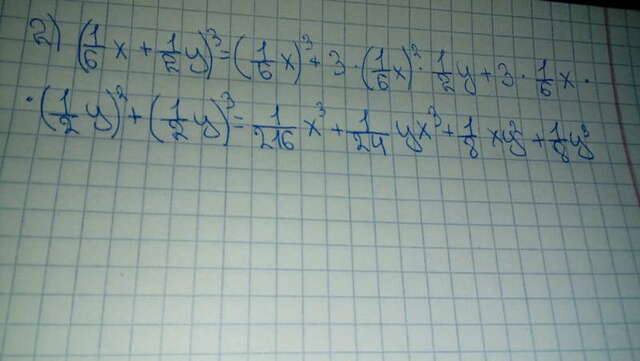 2) (1/6 x + 1/2 y)³ = (1/6 x)³ + 3 · (1/6 x)² · 1/2 y + 3 · 1/6 x ·
· (1/2 y)² + (1/2 y)³ = 1/216 x³ + 1/24 yx³ + 1/8 xy² + 1/8 y³